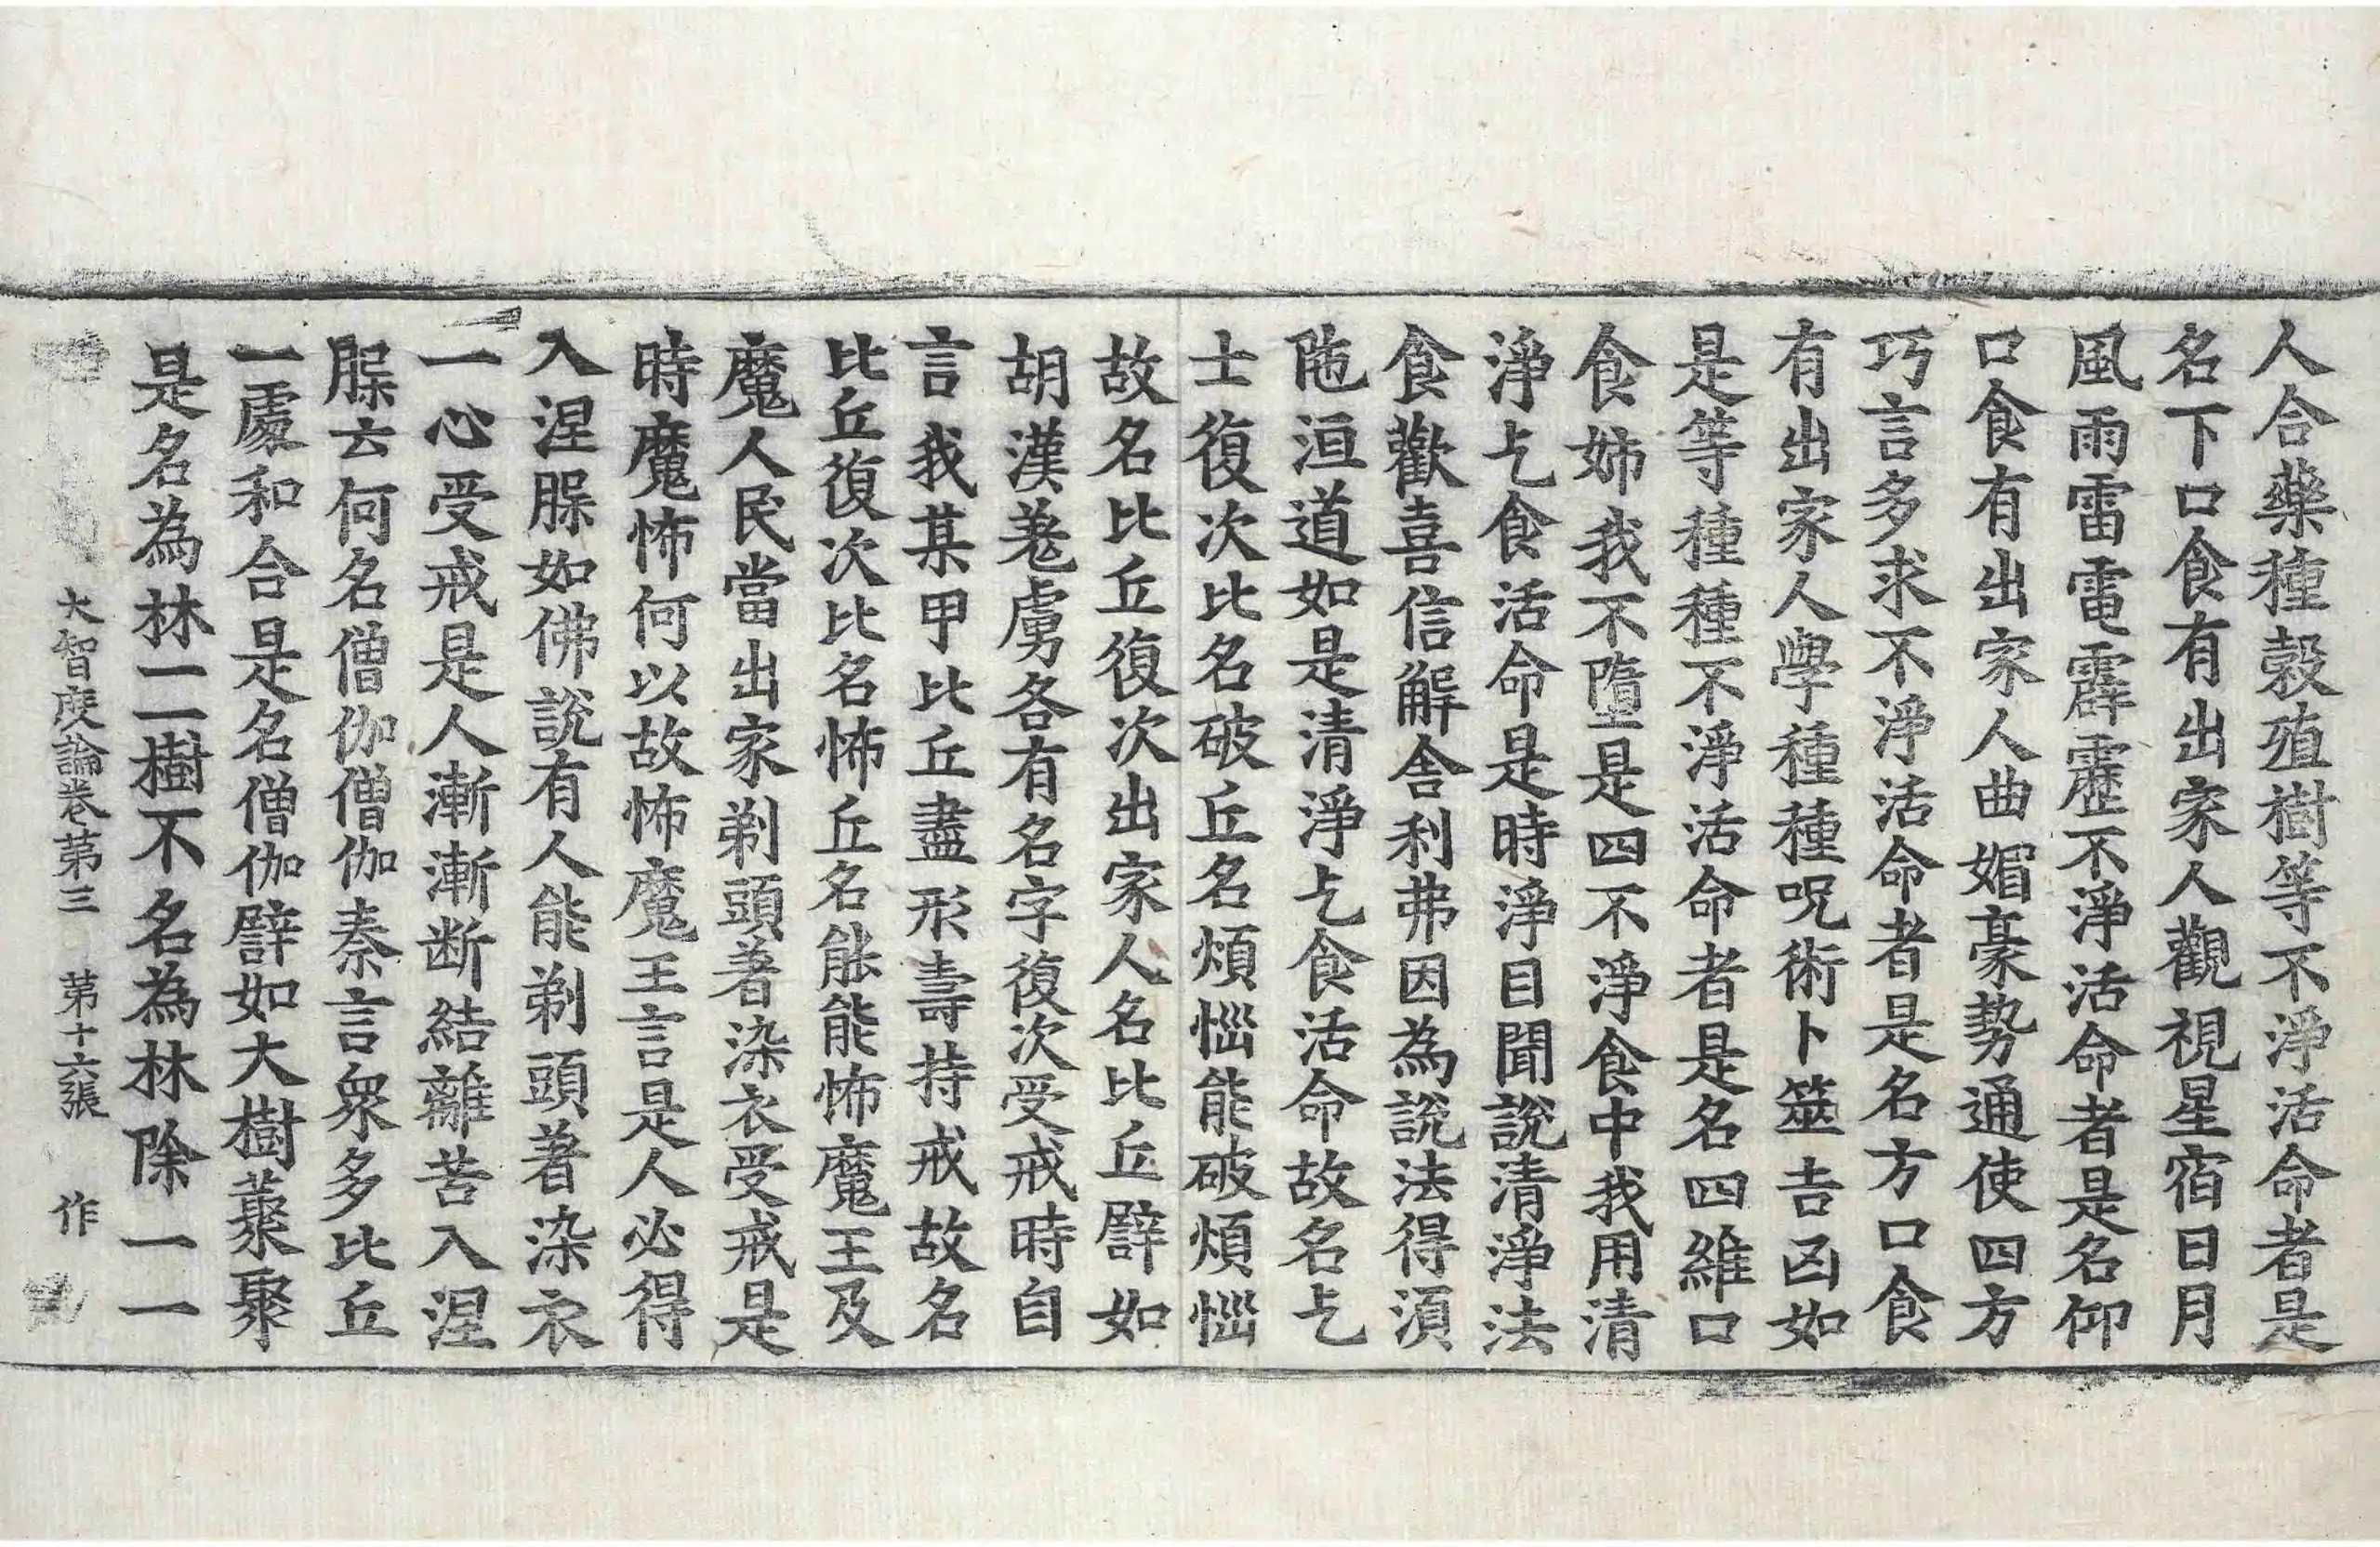 人合藥種穀殖樹等不淨活命者是
名下口食有出家人觀視星宿日月
風雨雷電霹靂不淨活命者是名仰
口食有出家人曲媚豪勢通使四方
巧言多求不淨活命者是名方口食
有出家人學種種呪術卜筮吉凶如
是等種種不淨活命者是名四維口
食姉我不墮是四不淨食中我用清
淨乞食活命是時淨目聞說清淨法
食歡喜信解舍利弗因為說法得湏
陁洹道如是清淨乞食活命故名乞
士復次比名破丘名煩惱能破煩惱
故名比丘復次出家人名比丘譬如
胡漢羌虜各有名字復次受戒時自
言我某甲比丘盡形壽持戒故名
比丘復次比名怖丘名能能怖魔王及
魔人民當出家剃頭著染衣受戒是
時魔怖何以故怖魔王言是人必得
入涅槃如佛說有人能剃頭著染衣
一心受戒是人漸漸断結離苦入涅
槃云何名僧伽僧伽秦言衆多比丘
一處和合是名僧伽譬如大樹藂聚
是名為林一一樹不名為林除一一
大智度論卷第三 第十六張 作